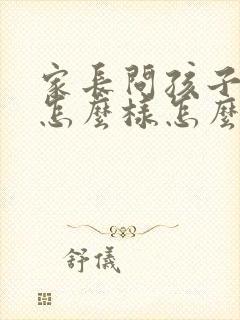 家長問孩子
怎麼樣怎麼
舒儀